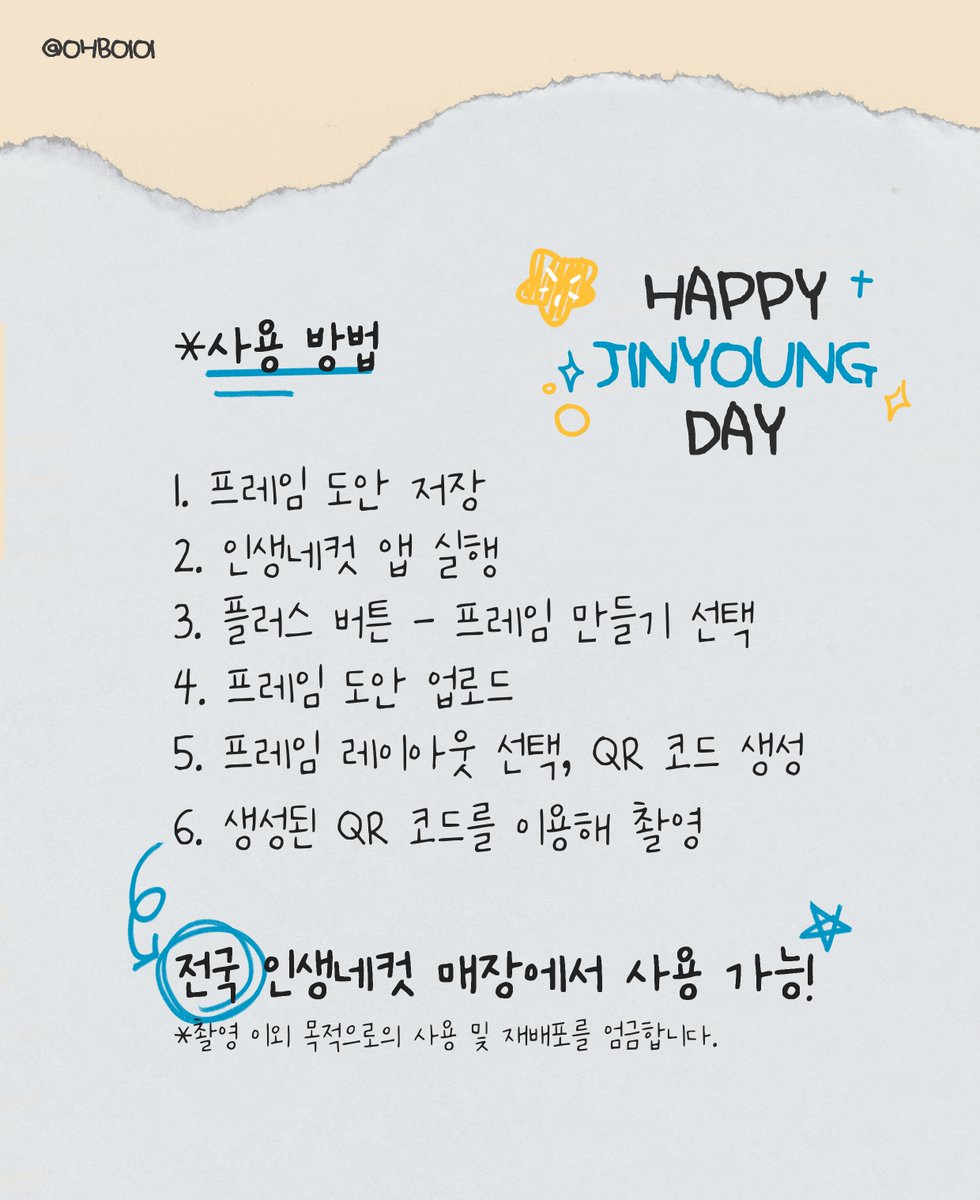 @OHBO101
HAPPY
JINYOUNG
DAY
*사용 방법
1. 프레임 도안 저장
2. 인생네컷 앱 실행
3. 플러스 버튼 - 프레임 만들기 선택
4. 프레임 도안 업로드
5. 프레임 레이아웃 선택, QR 코드 생성
6. 생성된 QR 코드를 이용해 촬영
전국 인생네컷 매장에서 사용 가능!
*촬영 이외 목적으로의 사용 및 재배포를 엄금합니다.